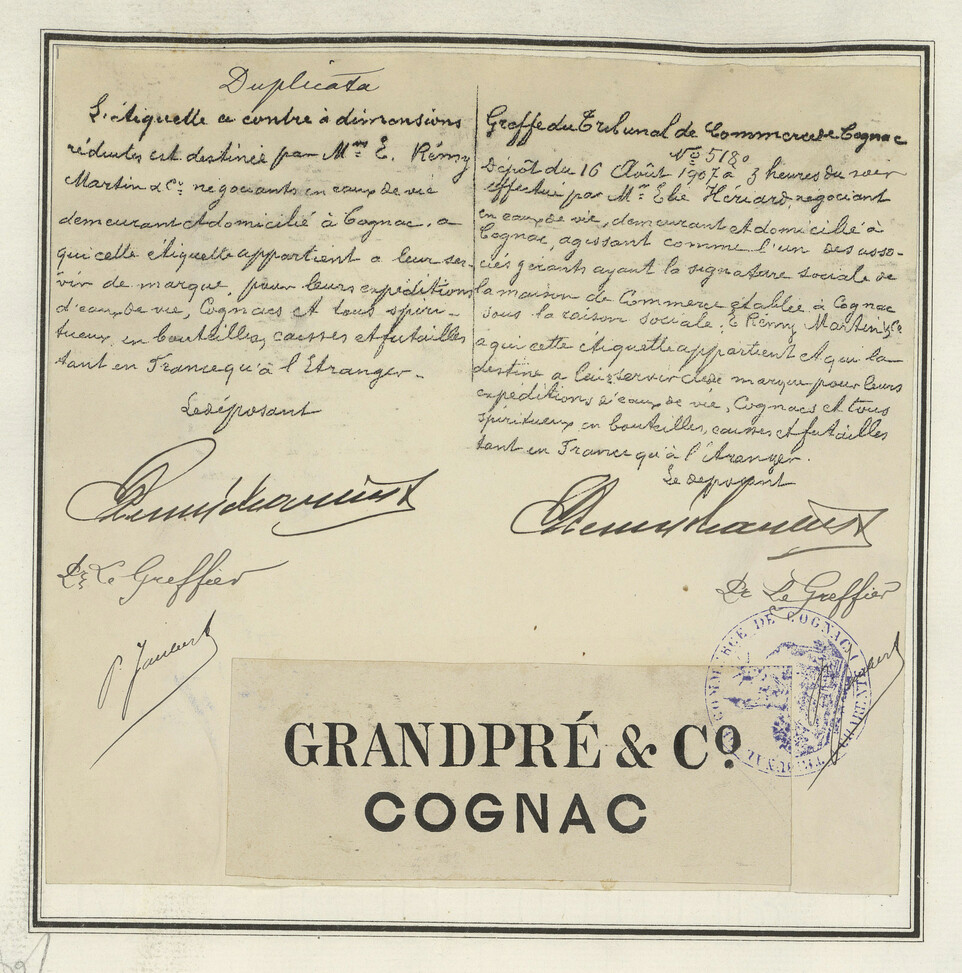 Duplicata
L'étiquette ci contre à dimensions
réduites est destinée par Mrs E. Rémy
Martin & Cie négociants en eaux de vie
demeurant et domicilié à Cognac, a
qui cette étiquette appartient a leur ser-
vir de marque, pour leurs expéditions
d'eaux de vie, Cognacs et tous spiri-
tueux, en bouteilles, caisses et futailles
tant en France qu'à l'Etranger.
Le déposant
E Remy Martin & Co
Pr Le Greffier
P. Jaubert
Greffe du Tribunal de Commerce de Cognac
No 5180
Dépôt du 16 Août 1907 à 3 heures du soir
effectué par Mr Elie Hériard négociant
en eaux de vie, demeurant et domicilié à
Cognac, agissant comme l'un des asso-
ciés gérants ayant la signature sociale de
la maison de Commerce établie à Cognac
sous la raison sociale: E Rémy Martin & Co
a qui cette étiquette appartient et qui la
destine a lui servir de marque pour leurs
expéditions d'eaux de vie, Cognacs et tous
spiritueux en bouteilles, caisses et futailles
tant en France qu'à l'étranger.
Le déposant
E Remy Martin & Co
Pr Le Greffier
Jaubert
TRIBUNAL DE COMMERCE DE COGNAC (CHARENTE)
GRANDPRÉ & Co.
COGNAC